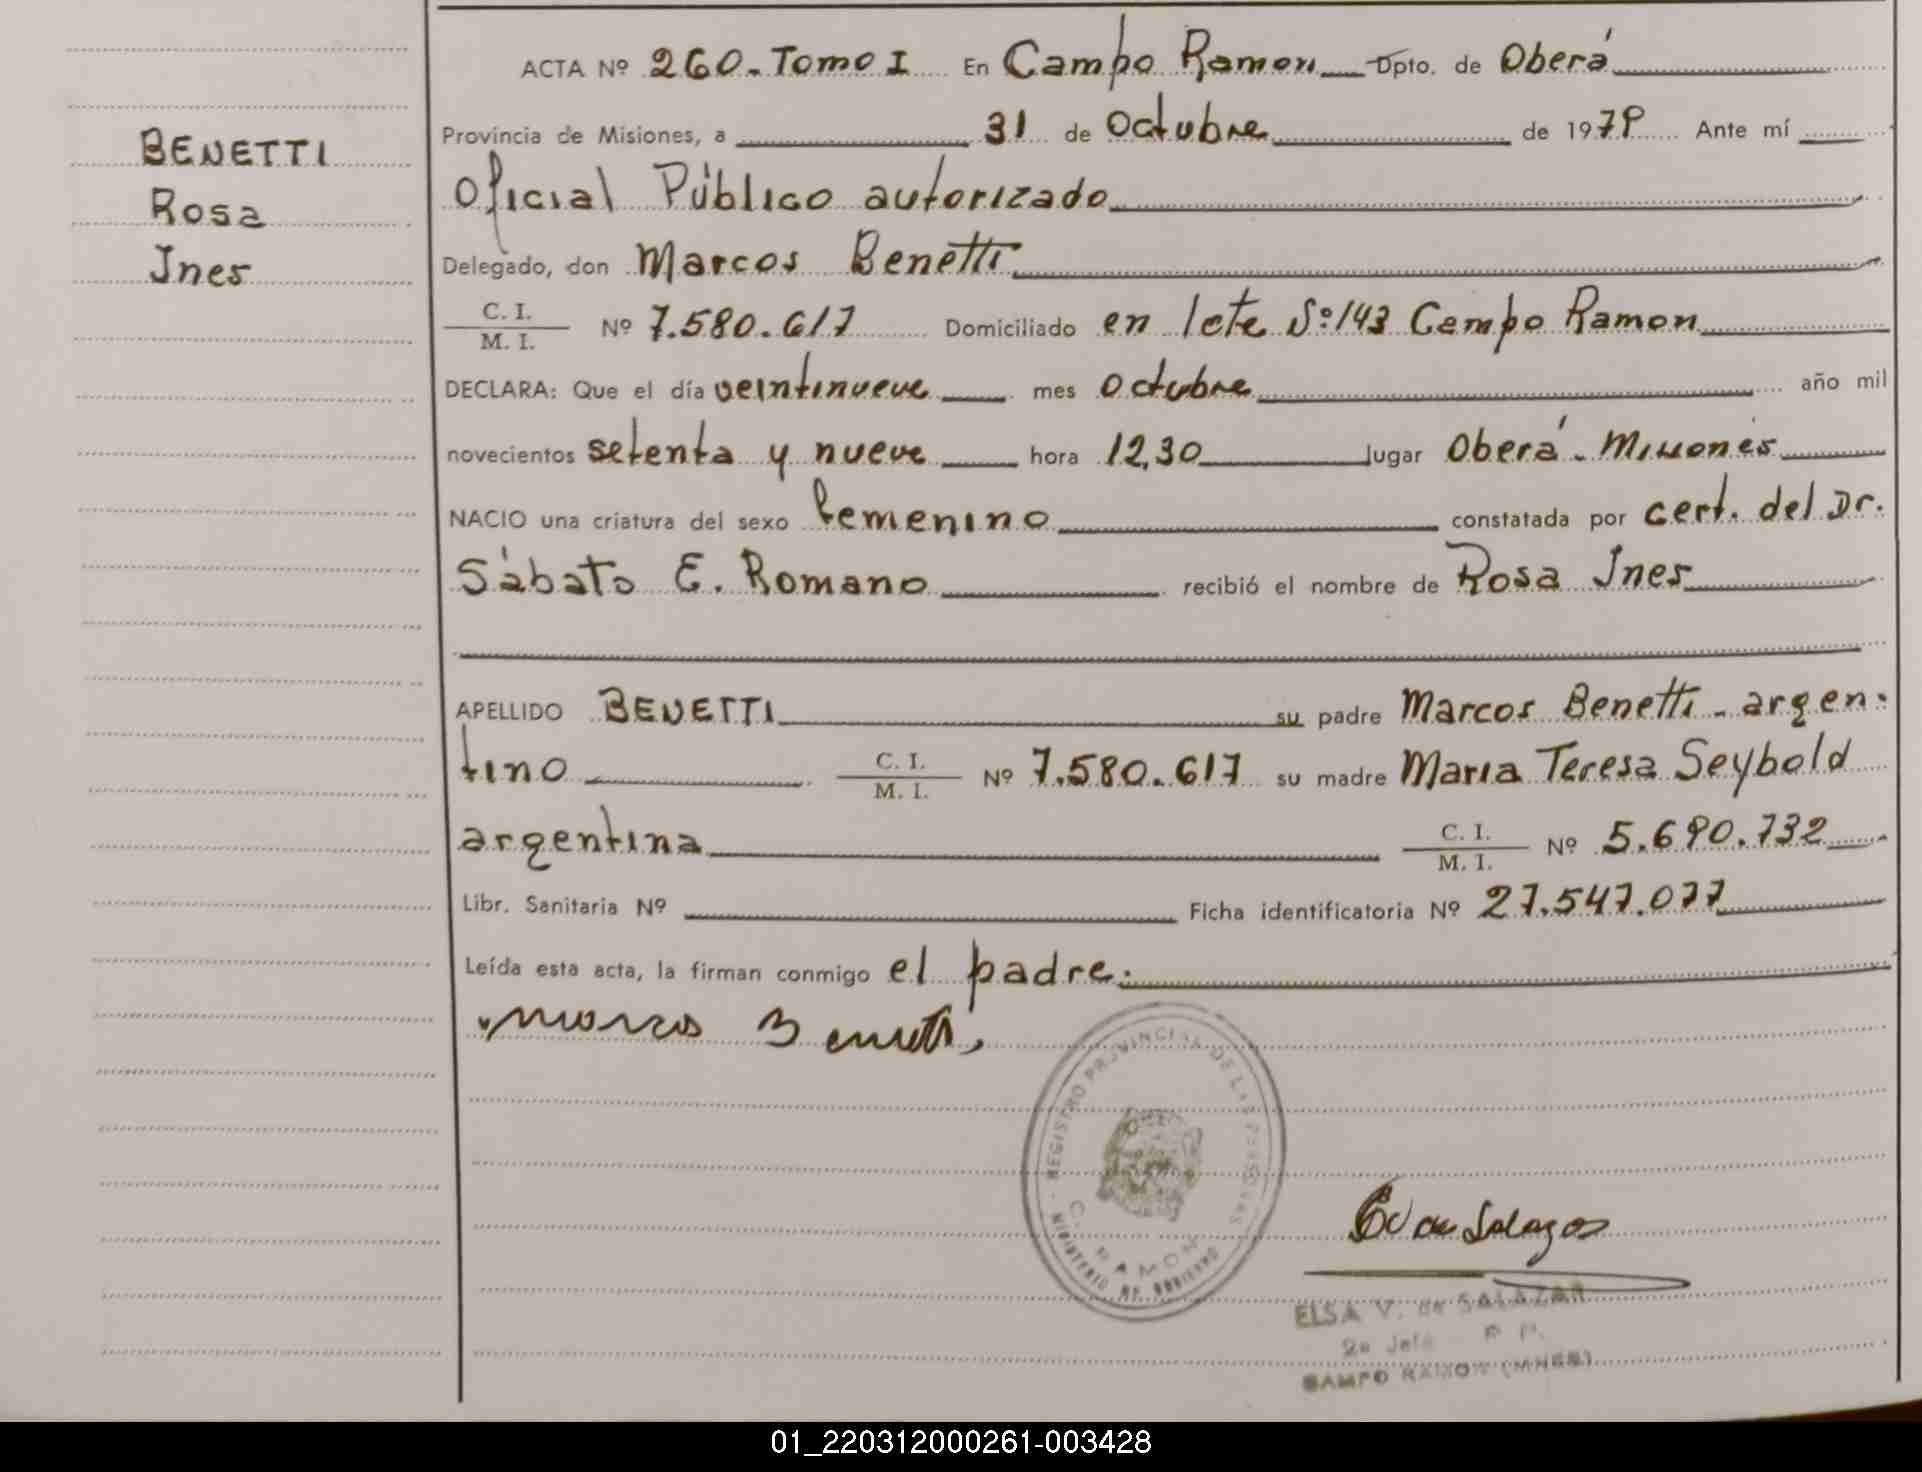 BENETTI
Rosa
Ines
ACTA Nº 260. Tomo I En Campo Ramon Dpto. de Oberá
Provincia de Misiones, a 31 de Octubre de 1979 Ante mí
Oficial Público autorizado
Delegado, don Marcos Benetti
C. I.
M. I. Nº 7.580.617 Domiciliado en lote Nº 143 Campo Ramon
DECLARA: Que el día veintinueve mes Octubre año mil
novecientos setenta y nueve hora 12,30 lugar Oberá - Misiones
NACIO una criatura del sexo femenino constatada por cert. del Dr.
Sábato E. Romano recibió el nombre de Rosa Ines
APELLIDO BENETTI su padre Marcos Benetti - argen-
tino C. I.
M. I. Nº 7.580.617 su madre Maria Teresa Seybold
argentina C. I.
M. I. Nº 5.690.732
Libr. Sanitaria Nº Ficha identificatoria Nº 27.547.077
Leída esta acta, la firman conmigo el padre.
Marcos Benetti
REGISTRO PROVINCIAL DE LAS PERSONAS
C. RAMON
MINISTERIO DE GOBIERNO
ELSA V. de SALAZAR
CAMPO RAMON (MNES)
01_220312000261-003428